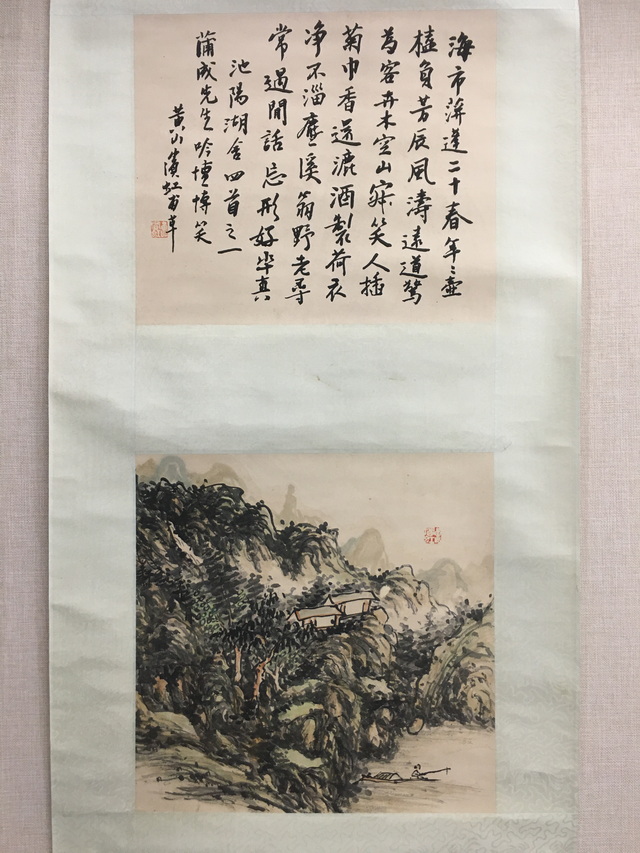 海市蓱蓬二十春年〻壺
榼負芳辰風濤遠道驚
為客卉木空山寂笑人插
菊巾香還漉酒製荷衣
净不淄塵溪翁野老尋
常過閒話忘形好率真
池陽湖舍四首之一
蒲成先生吟壇博笑
黃山濱虹甫草